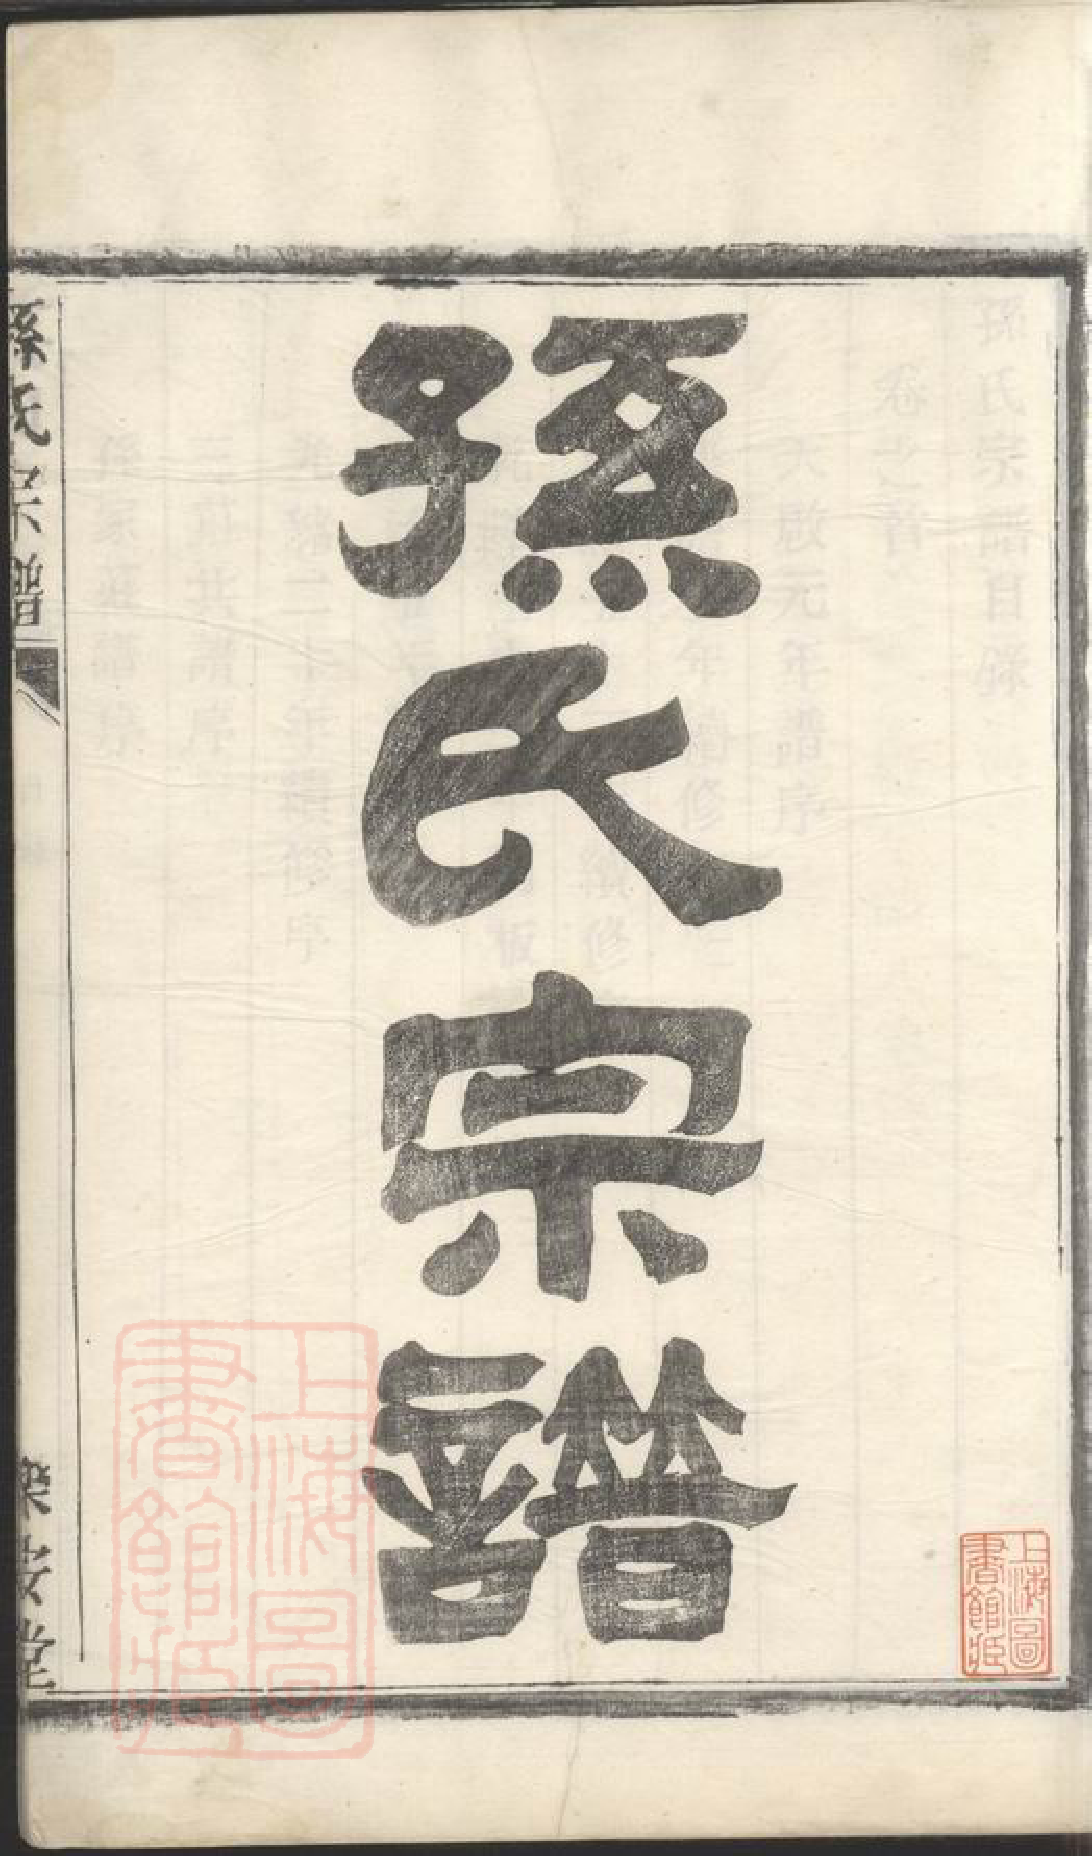 孫氏宗譜
孫氏宗譜
堂
上海圖
書館藏
上海圖
書館藏